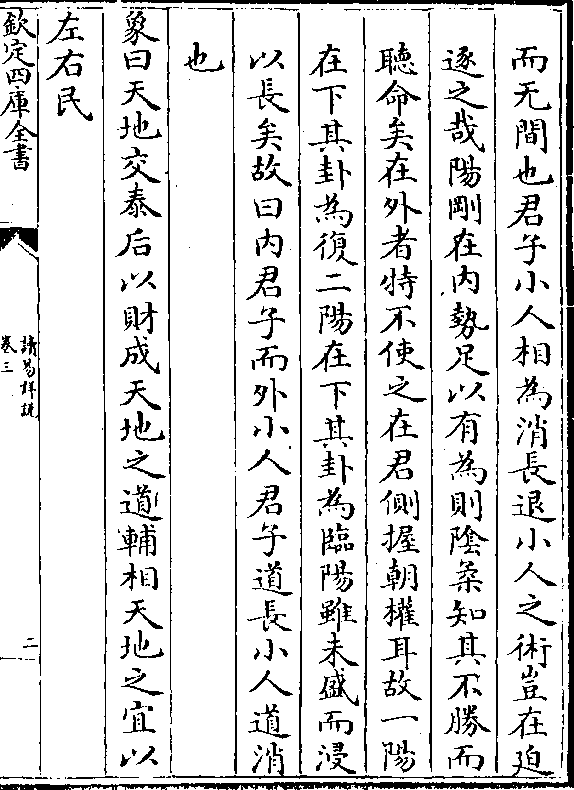 而无間也君子小人相為消長退小人之術豈在迫
逐之哉陽剛在内勢足以有為則陰柔知其不勝而
聽命矣在外者特不使之在君側握朝權耳故一陽
在下其卦為復二陽在下其卦為臨陽雖未盛而浸
以長矣故曰内君子而外小人君子道長小人道消
也
象曰天地交泰后以財成天地之道輔相天地之宜以
左右民
欽定四庫全書
讀易詳說
卷三
二